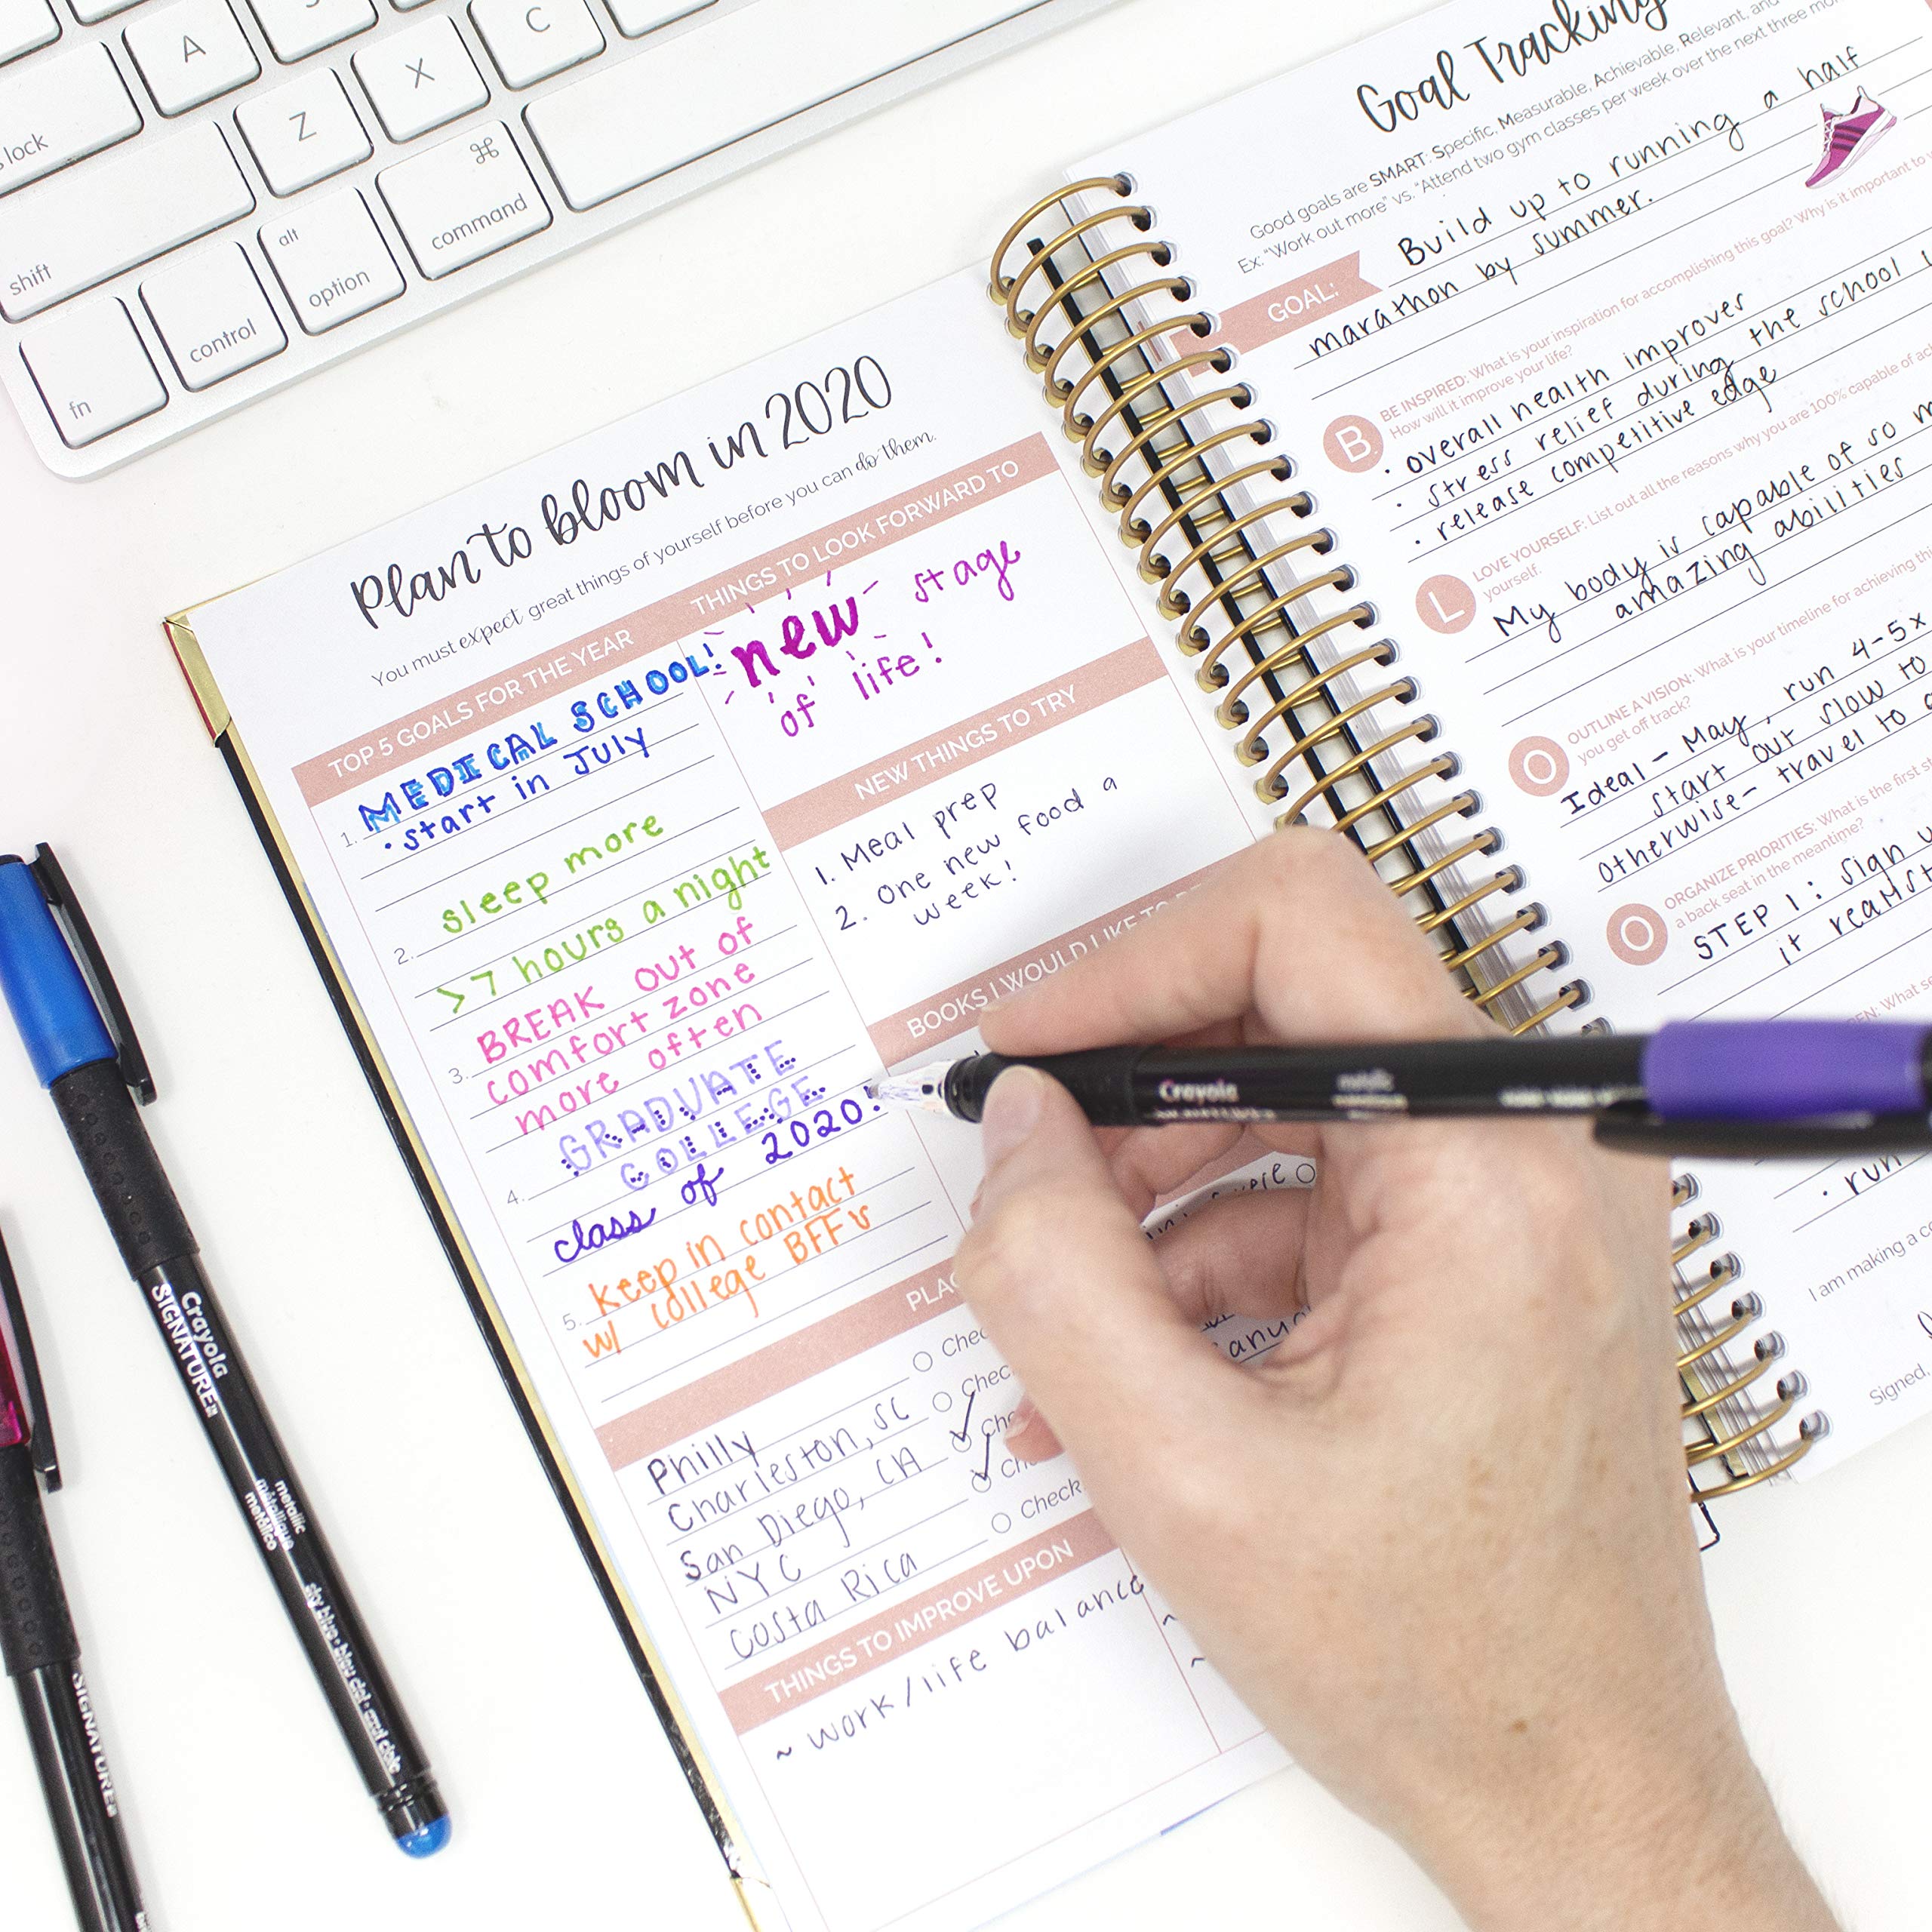 A
Z
X
C
lock
shift
fn
control
alt
option
⌘
command
Plan to bloom in 2020
You must expect great things of yourself before you can do them.
TOP 5 GOALS FOR THE YEAR
1. MEDICAL SCHOOL!
• start in JULY
2. sleep more
>7 hours a night
3. BREAK out of
comfort zone
more often
4. GRADUATE
COLLEGE
class of 2020!
5. keep in contact
w/ college BFFs
THINGS TO LOOK FORWARD TO
new stage
of life!
NEW THINGS TO TRY
1. Meal prep
2. one new food a
week!
BOOKS I WOULD LIKE TO
Philly
Charleston, SC
San Diego, CA
NYC
Costa Rica
Check
THINGS TO IMPROVE UPON
~ work/life balance
~
~
Goal Tracking
Good goals are SMART: Specific, Measurable, Achievable, Relevant, and
Ex: "Work out more" vs. "Attend two gym classes per week over the next three
GOAL: Build up to running a half
marathon by summer.
B BE INSPIRED: What is your inspiration for accomplishing this goal? Why is it important to
How will it improve your life?
• overall health improves
• stress relief during the school
• release competitive edge
L LOVE YOURSELF: List out all the reasons why you are 100% capable of
yourself.
My body is capable of so
amazing abilities
O OUTLINE A VISION: What is your timeline for achieving
you get off track?
Ideal - May, run 4-5x
start out slow to
Otherwise - travel to
O ORGANIZE PRIORITIES: What is the first
a back seat in the meantime?
STEP 1: sign
it
What
• run
I am making a
Signed,
Crayola
Crayola
SIGNATURE™
metallic
métallique
metálico
sky blue • bleu ciel • azul cielo
SIGNATURE™